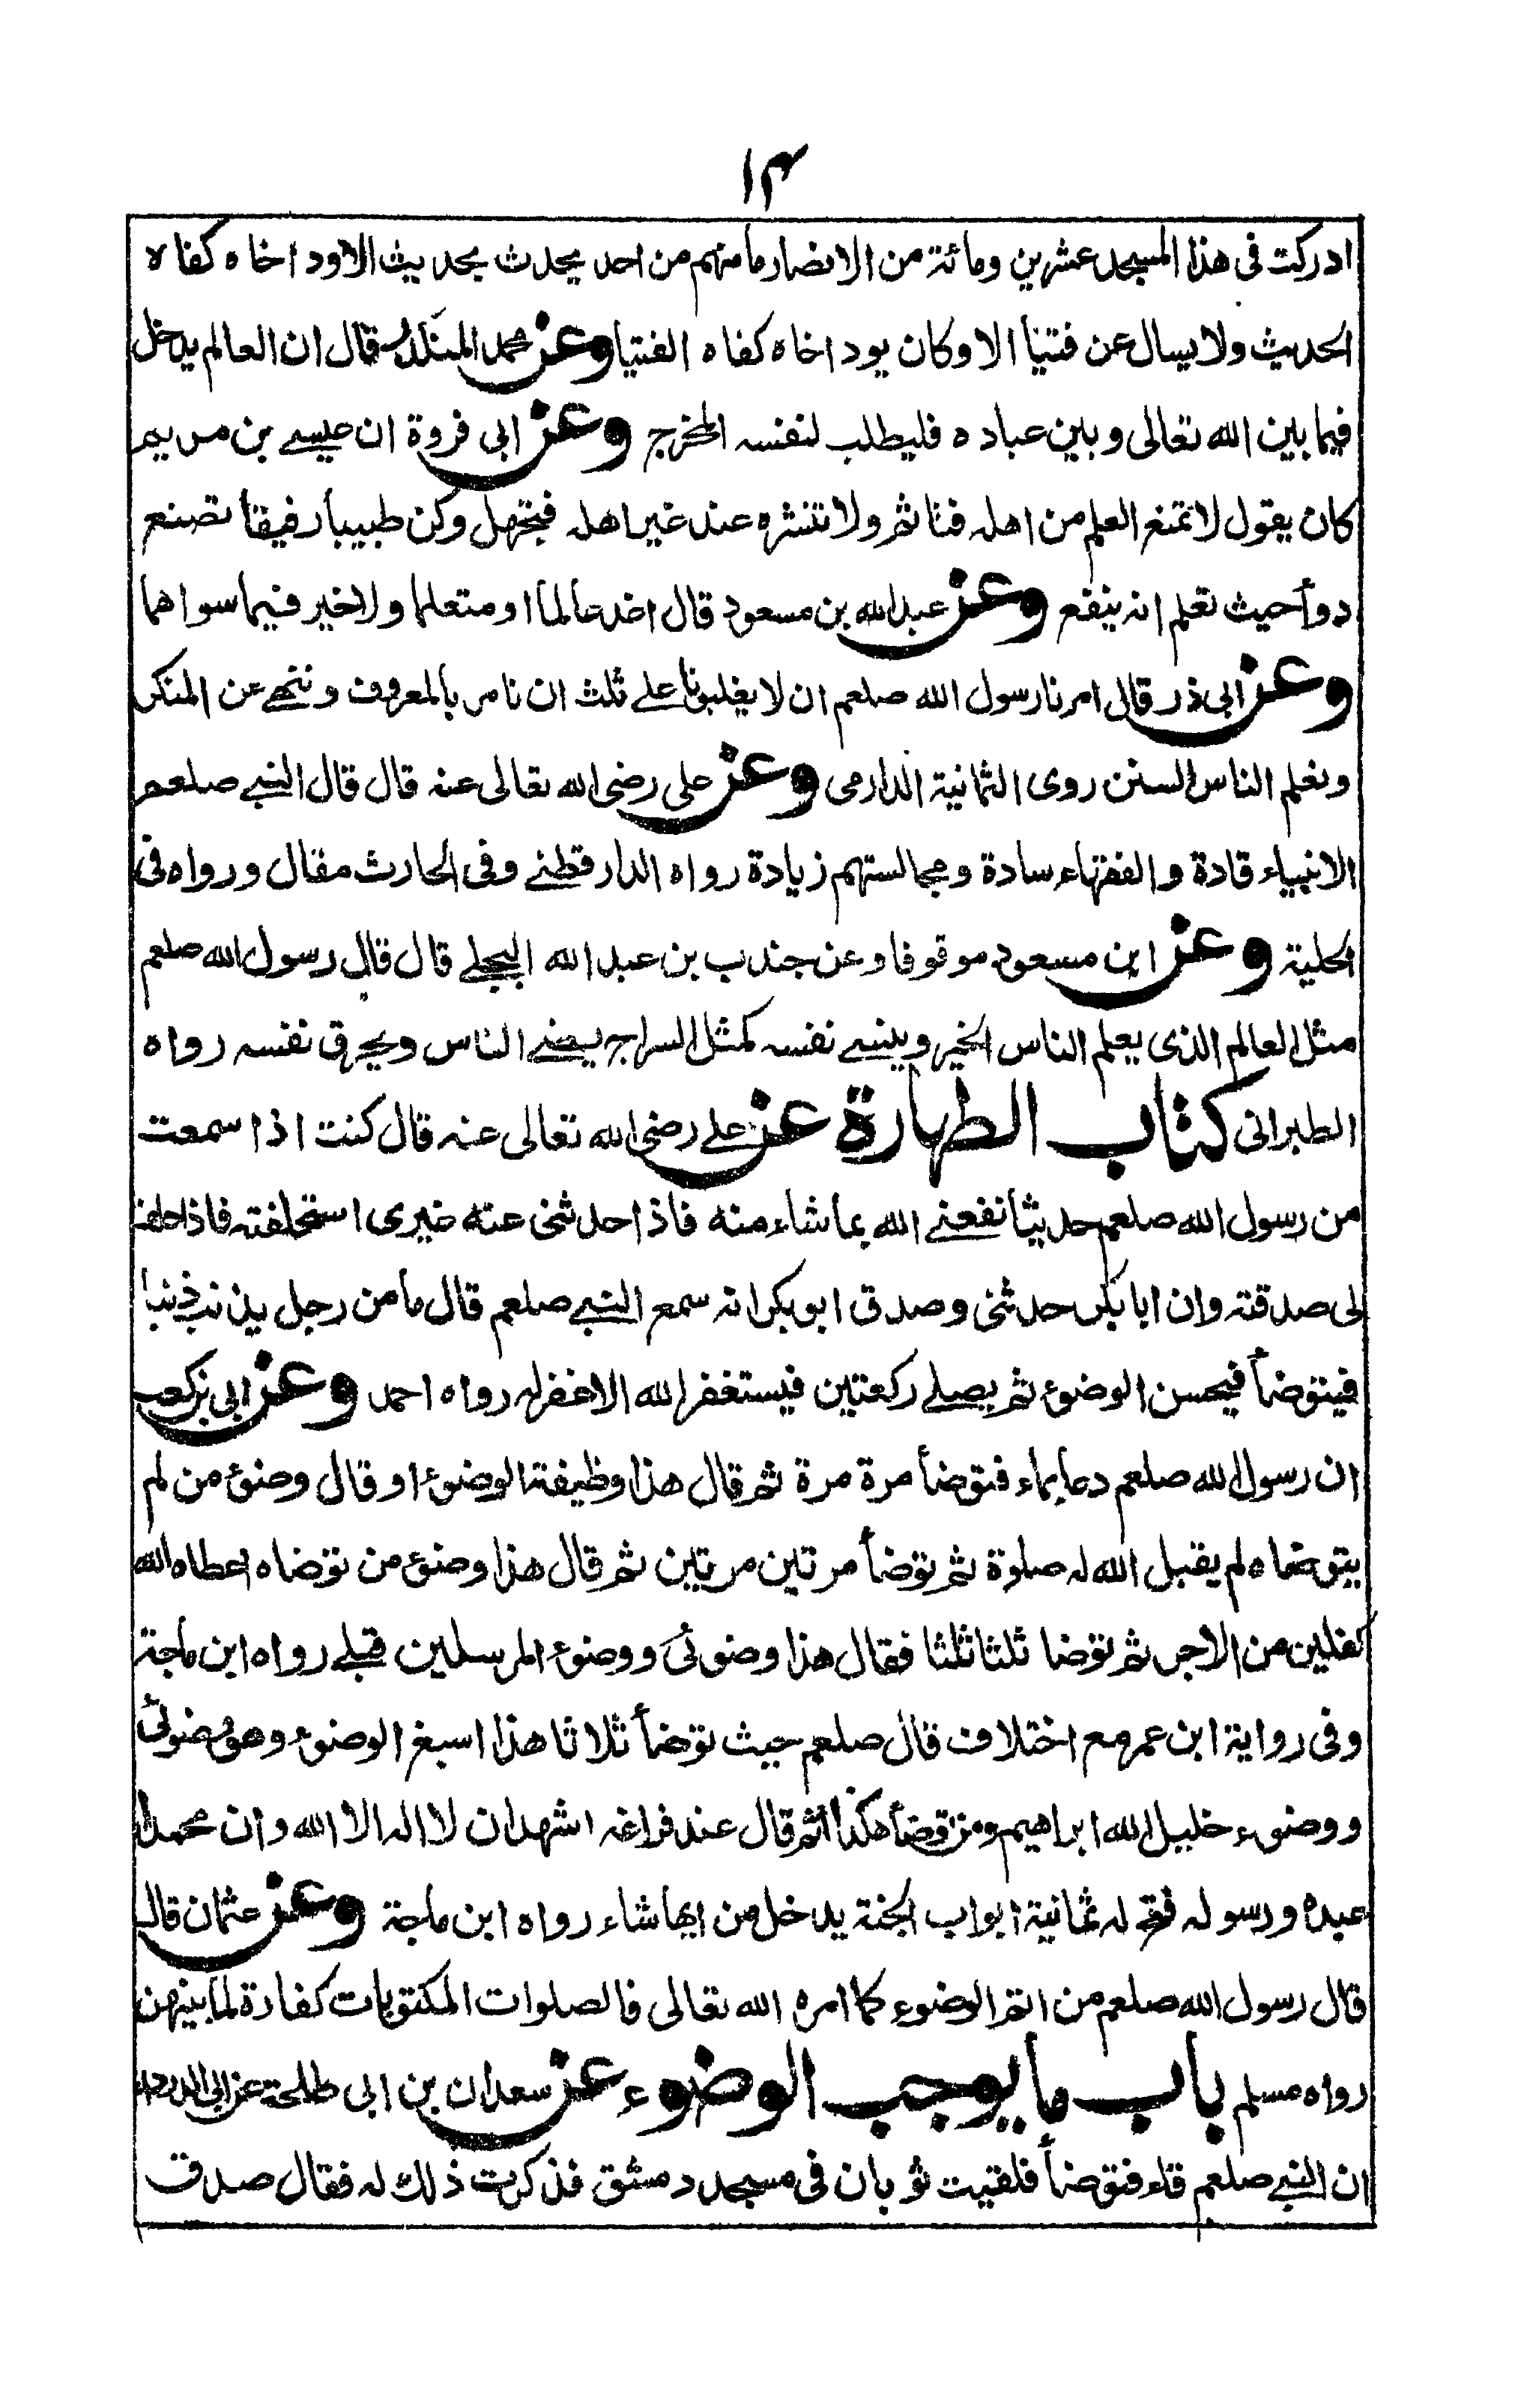 ١٤
ادركت فى هذا المسجد عشرين ومائة من الانصار ما منهم من احد يحدث بحديث الاود اخاه كفاه
الحديث ولا يسال عن فتيا الا وكان يود اخاه كفاه الفتيا وعن محمد المنكدر قال ان العالم يدخل
فيما بين الله تعالى وبين عباده فليطلب لنفسه المخرج وعن ابى فروة ان عيسے بن مريم
كان يقول لا تمنع العلم من اهله فتاثم ولا تنشره عند غير اهله فتجهل وكن طبيبأ رفيقأ تصنع
دوأ حيث تعلم انه ينفع وعن عبد الله بن مسعود قال اغد عالما او متعلما ولا خير فيما سواهما
وعن ابى ذر قال امرنا رسول الله صلعم ان لا يغلبونا على ثلث ان نامر بالمعروف وننهے عن المنكر
ونعلم الناس السنن روى الثمانية الدارمى وعن على رضى الله تعالى عنه قال قال النبے صلعم
الانبياء قادة والفقهاء سادة ومجالستهم زيادة رواه الدارقطنے وفى الحارث مقال ورواه فى
الحلية وعن ابن مسعود موقوفا وعن جندب بن عبد الله البجلے قال قال رسول الله صلعم
مثل العالم الذى يعلم الناس الخير وينسے نفسه كمثل السراج يضئے الناس ويحرق نفسه رواه
الطبرانى كتاب الطهارة عن علے رضى الله تعالى عنه قال كنت اذا سمعت
من رسول الله صلعم حديثا نفعنے الله بما شاء منه فاذا حدثنى عنه غيرى استحلفته فاذا حلف
لى صدقته وان ابا بكر حدثنى وصدق ابو بكر انه سمع النبے صلعم قال ما من رجل يذنب ذنبا
فيتوضأ فيحسن الوضوء ثم يصلے ركعتين فيستغفر الله الا غفر له رواه احمد وعن ابى بن كعب
ان رسول الله صلعم دعا بماء فتوضأ مرة مرة ثم قال هذا وظيفة الوضوء او قال وضوء من لم
يتوضاه لم يقبل الله له صلوة ثم توضأ مرتين مرتين ثم قال هذا وضوء من توضاه اعطاه الله
كفلين من الاجر ثم توضا ثلثا ثلثا فقال هذا وضوئى ووضوء المرسلين قبلے رواه ابن ماجة
وفى رواية ابن عمر مع اختلاف قال صلعم حيث توضأ ثلاثا هذا اسبغ الوضوء وهو وضوئى
ووضوء خليل الله ابراهيم ومن توضأ هكذا ثم قال عند فراغه اشهد ان لا اله الا الله وان محمدا
عبده ورسوله فتح له ثمانية ابواب الجنة يدخل من ايها شاء رواه ابن ماجة وعن عثمان قال
قال رسول الله صلعم من اتم الوضوء كما امره الله تعالى فالصلوات المكتوبات كفارة لما بينهن
رواه مسلم باب ما يوجب الوضوء عن سعدان بن ابى طلحة عن ابى الدرداء
ان النبے صلعم قاء فتوضأ فلقيت ثوبان فى مسجد دمشق فذكرت ذلك له فقال صدق